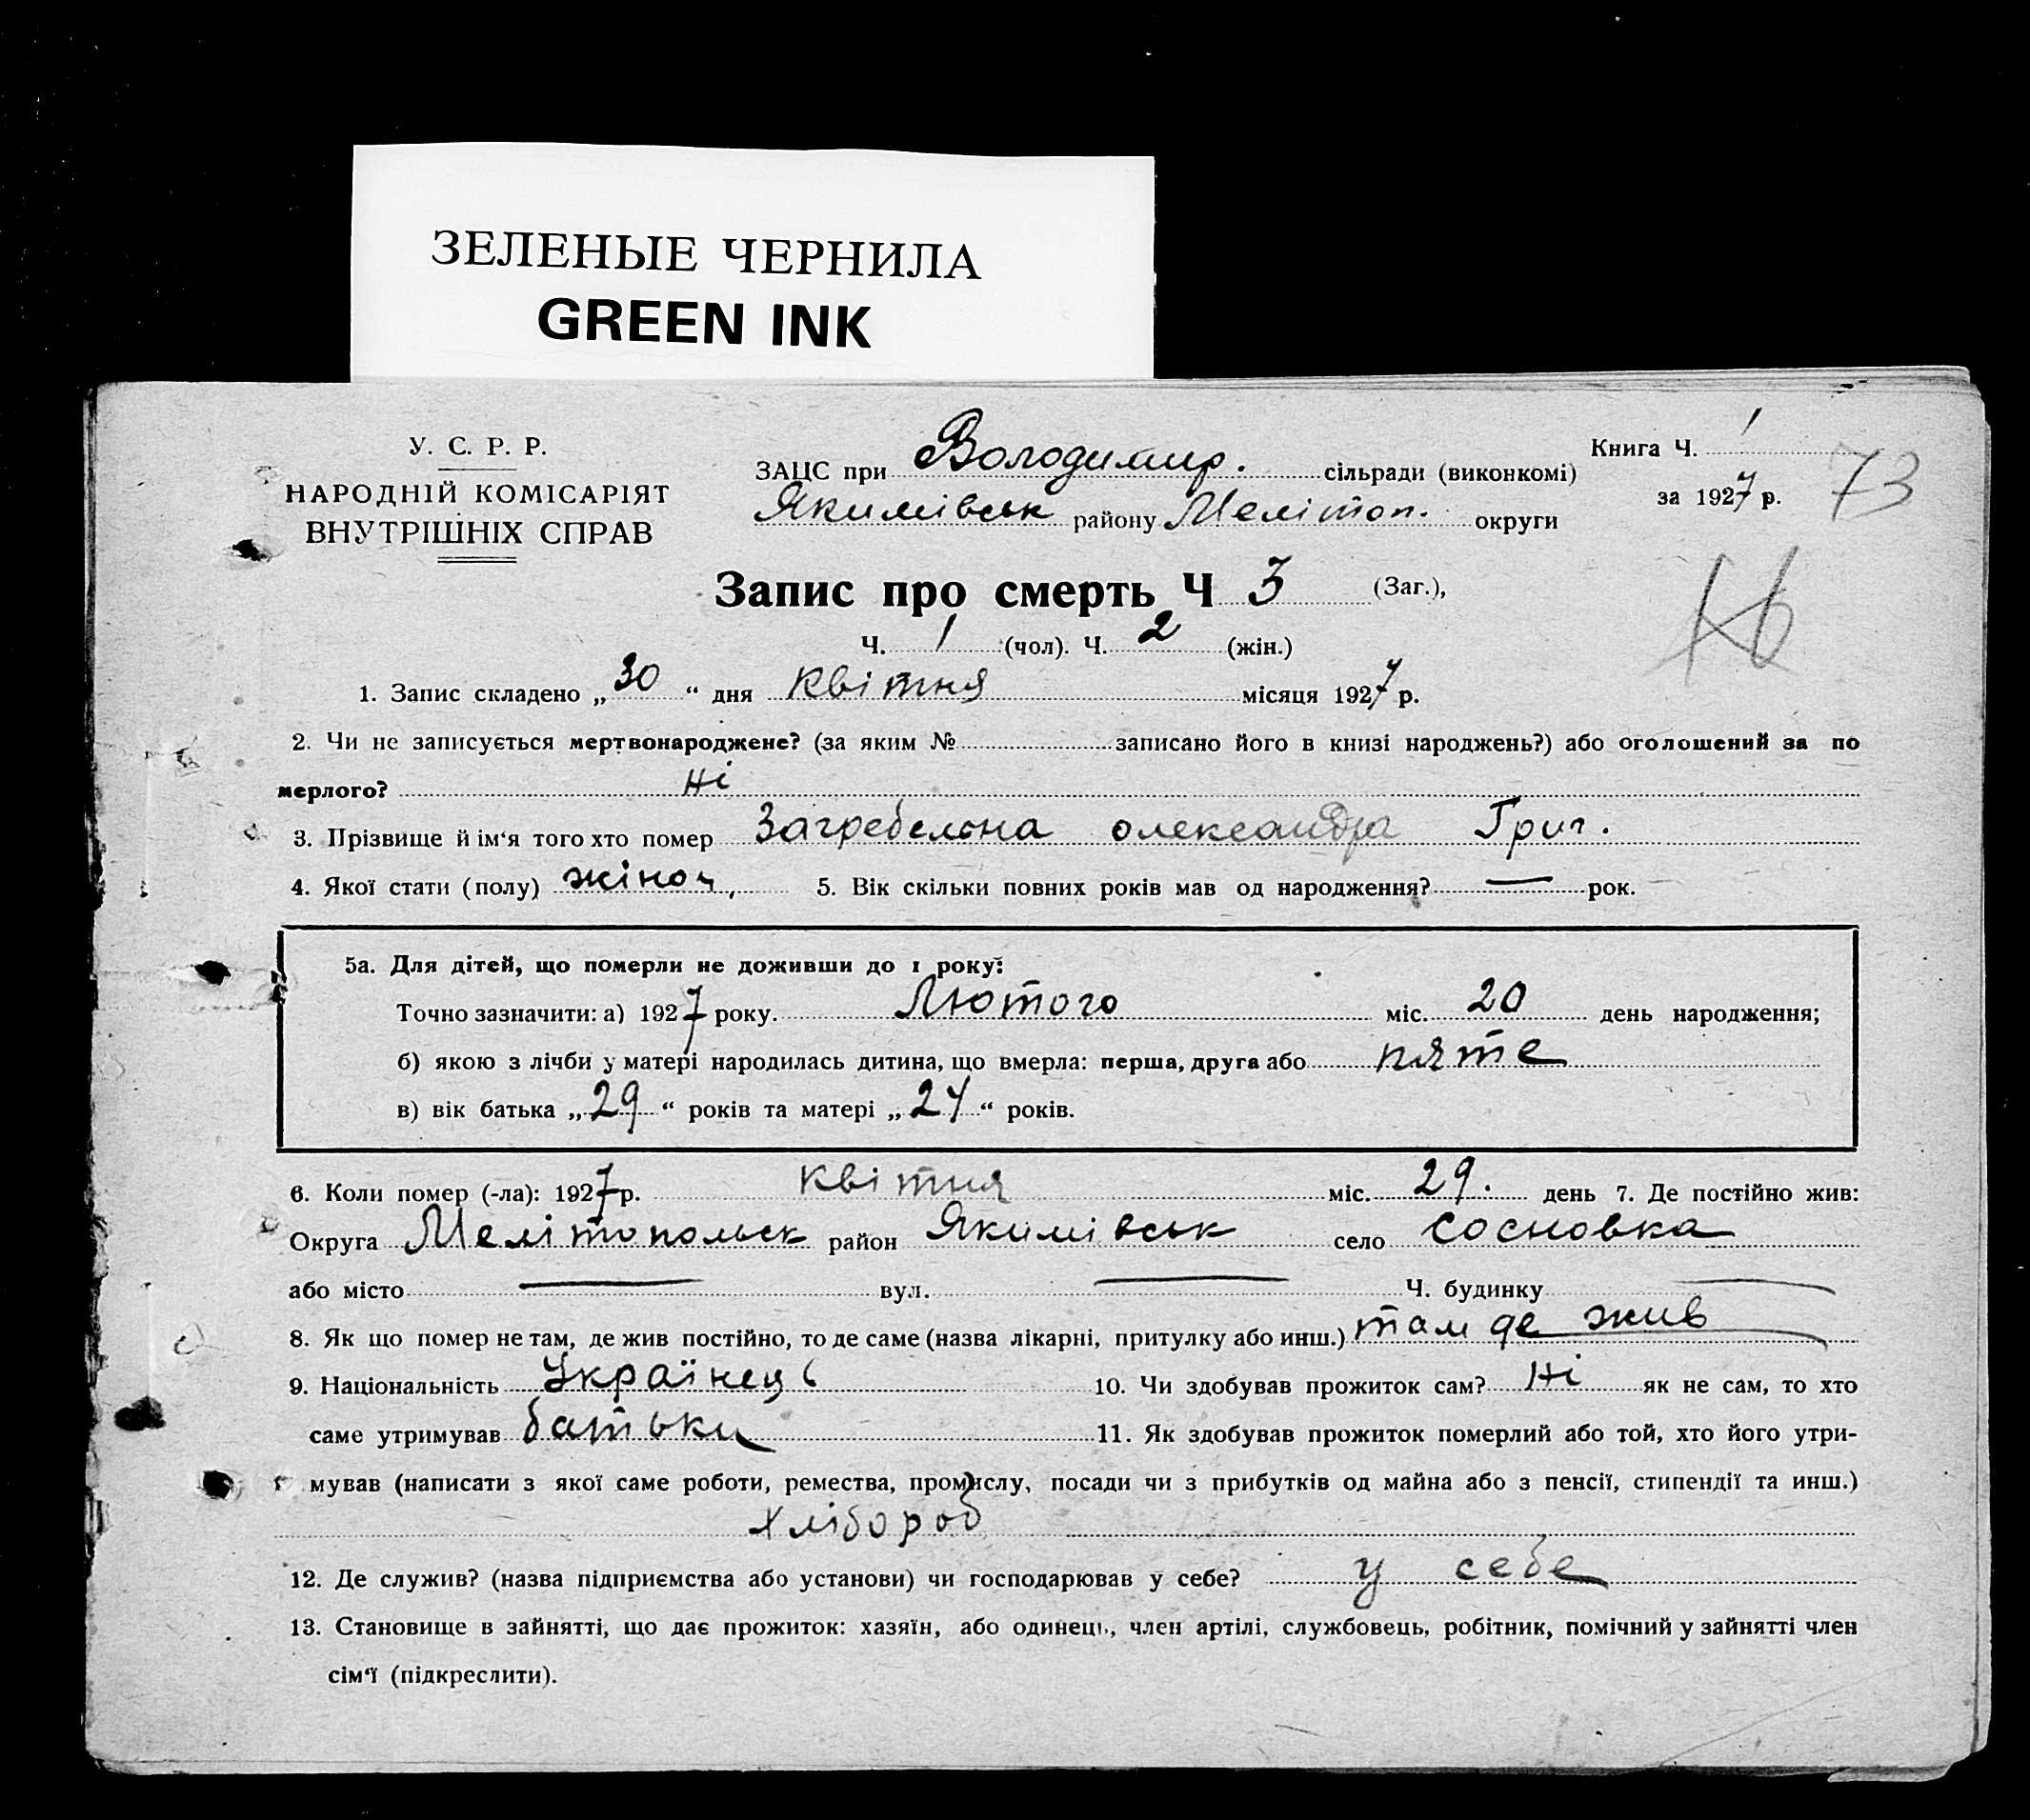 ЗЕЛЕНЫЕ ЧЕРНИЛА
GREEN INK
У. С. Р. Р.
НАРОДНІЙ КОМІСАРІЯТ
ВНУТРІШНІХ СПРАВ
ЗАЦС при Володимир. сільради (виконкомі)
Якимівськ району Мелітоп. округи
Книга Ч. 1
за 1927 р.
73
Запис про смерть Ч 3 (Заг.),
Ч. 1 (чол). Ч. 2 (жін.)
1. Запис складено „30“ дня квітня місяця 1927 р.
2. Чи не записується мертвонароджене? (за яким № записано його в книзі народжень?) або оголошений за по
мерлого? Ні
3. Прізвище й ім‘я того хто помер Загребельна олександра Григ.
4. Якої стати (полу) жіноч, 5. Вік скільки повних років мав од народження? — рок.
5а. Для дітей, що померли не доживши до 1 року:
Точно зазначити: а) 1927 року. Лютого міс. 20 день народження;
б) якою з лічби у матері народилась дитина, що вмерла: перша, друга або пяте
в) вік батька „29“ років та матері „27“ років.
6. Коли помер (-ла): 1927 р. квітня міс. 29. день 7. Де постійно жив:
Округа Мелітопольск район Якимівськ село Сосновка
або місто — вул. — Ч. будинку —
8. Як що помер не там, де жив постійно, то де саме (назва лікарні, притулку або инш.) там де жив
9. Національність Українець 10. Чи здобував прожиток сам? Ні як не сам, то хто
саме утримував батьки 11. Як здобував прожиток померлий або той, хто його утри-
мував (написати з якої саме роботи, ремества, промислу, посади чи з прибутків од майна або з пенсії, стипендії та инш.)
Хлібороб
12. Де служив? (назва підприємства або установи) чи господарював у себе? у себе
13. Становище в зайнятті, що дає прожиток: хазяїн, або одинець, член артілі, службовець, робітник, помічний у зайнятті член
сім‘ї (підкреслити).